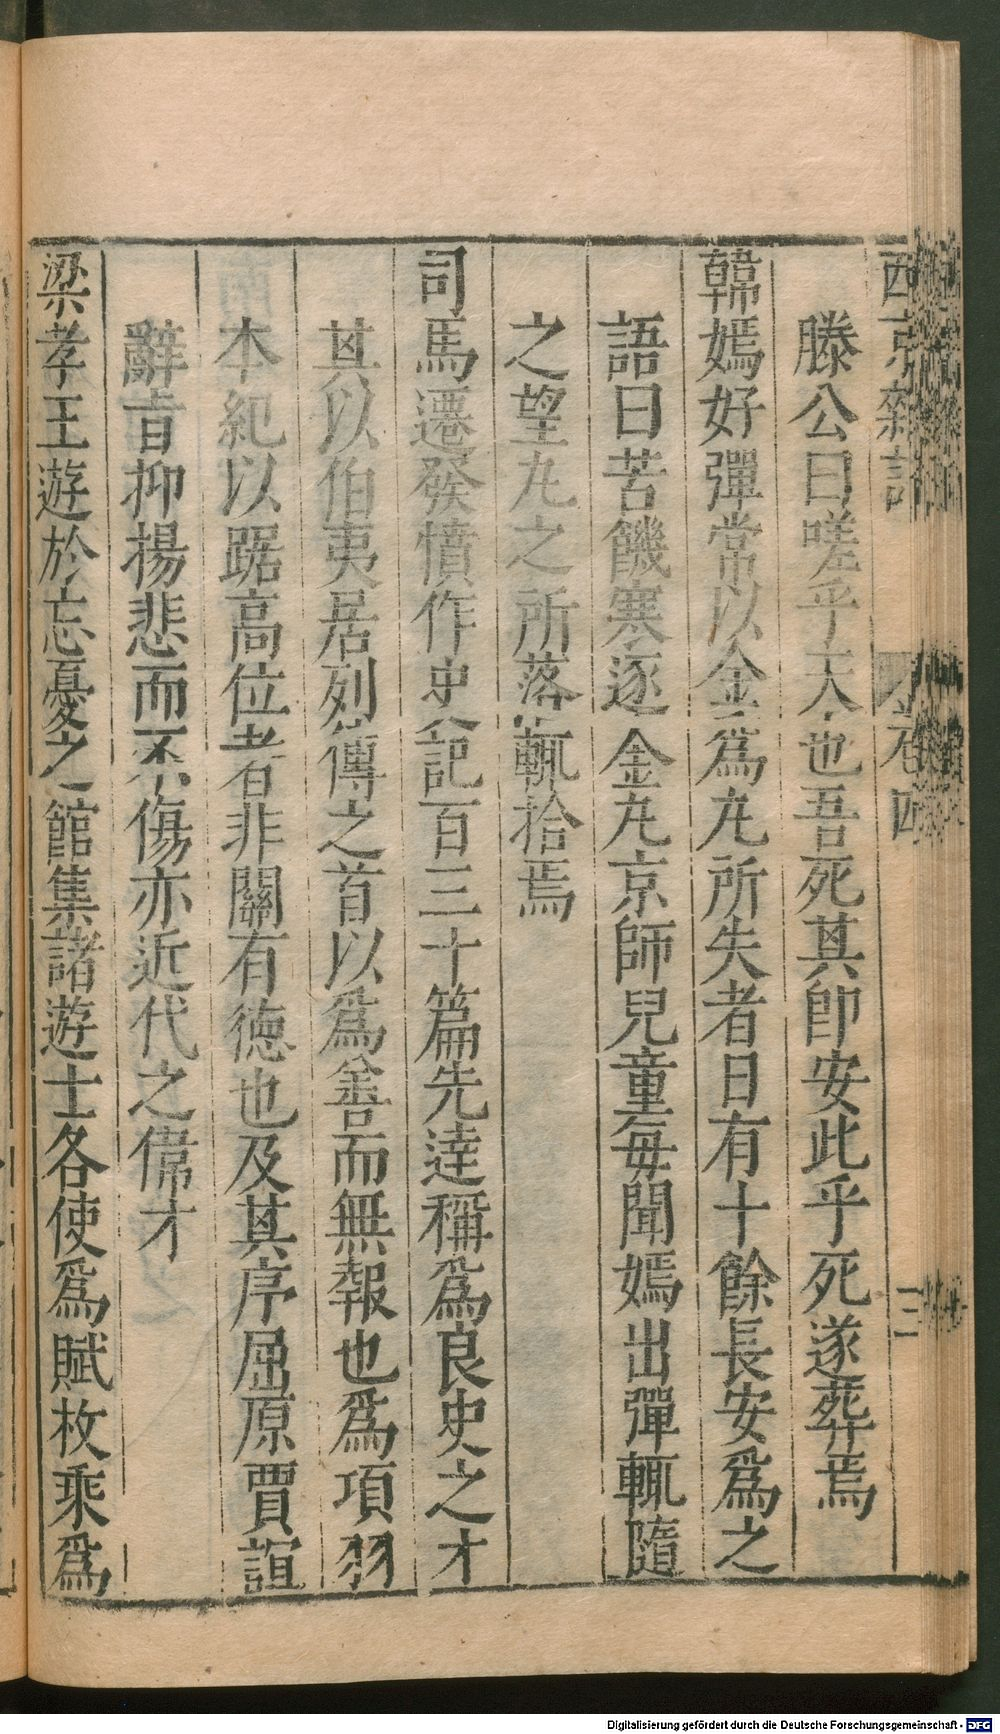 西京雜記 卷四 三
滕公曰嗟乎天也吾死其卽安此乎死遂葬焉
韓嫣好彈常以金爲丸所失者日有十餘長安爲之
語曰苦饑寒逐金丸京師兒童每聞嫣出彈輒隨
之望丸之所落輒拾焉
司馬遷發憤作史記百三十篇先達稱爲良史之才
其以伯夷居列傳之首以爲善而無報也爲項羽
本紀以踞高位者非關有德也及其序屈原賈誼
辭旨抑揚悲而不傷亦近代之偉才
梁孝王遊於忘憂之館集諸遊士各使爲賦枚乘爲
Digitalisierung gefördert durch die Deutsche Forschungsgemeinschaft - DFG